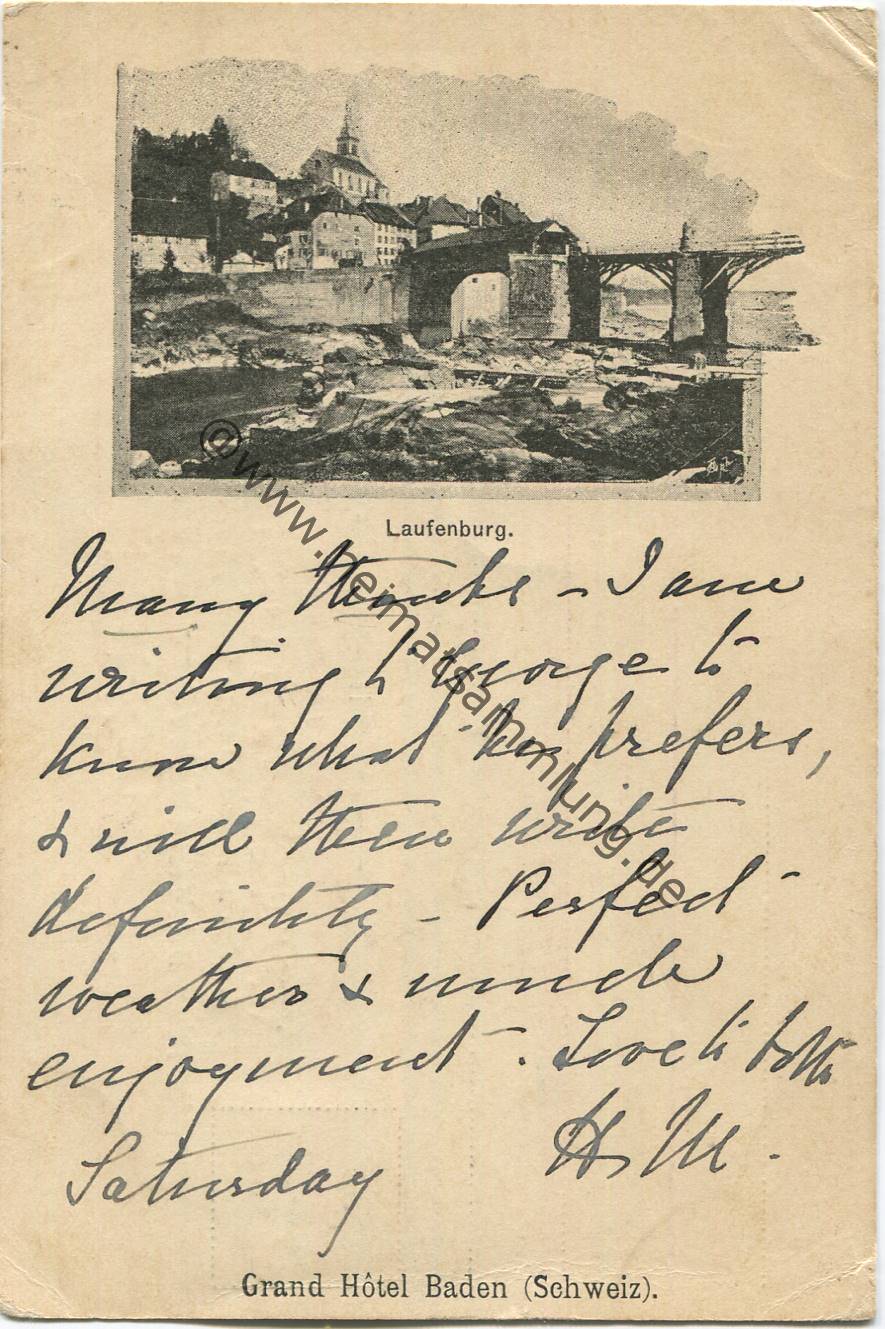 Laufenburg.
Many thanks – I am
writing to George to
know what he prefers,
& will then write
definitely – Perfect
weather & much
enjoyment. Love to both
H. M.
Saturday
Grand Hôtel Baden (Schweiz).
©www.heimatsammlung.de